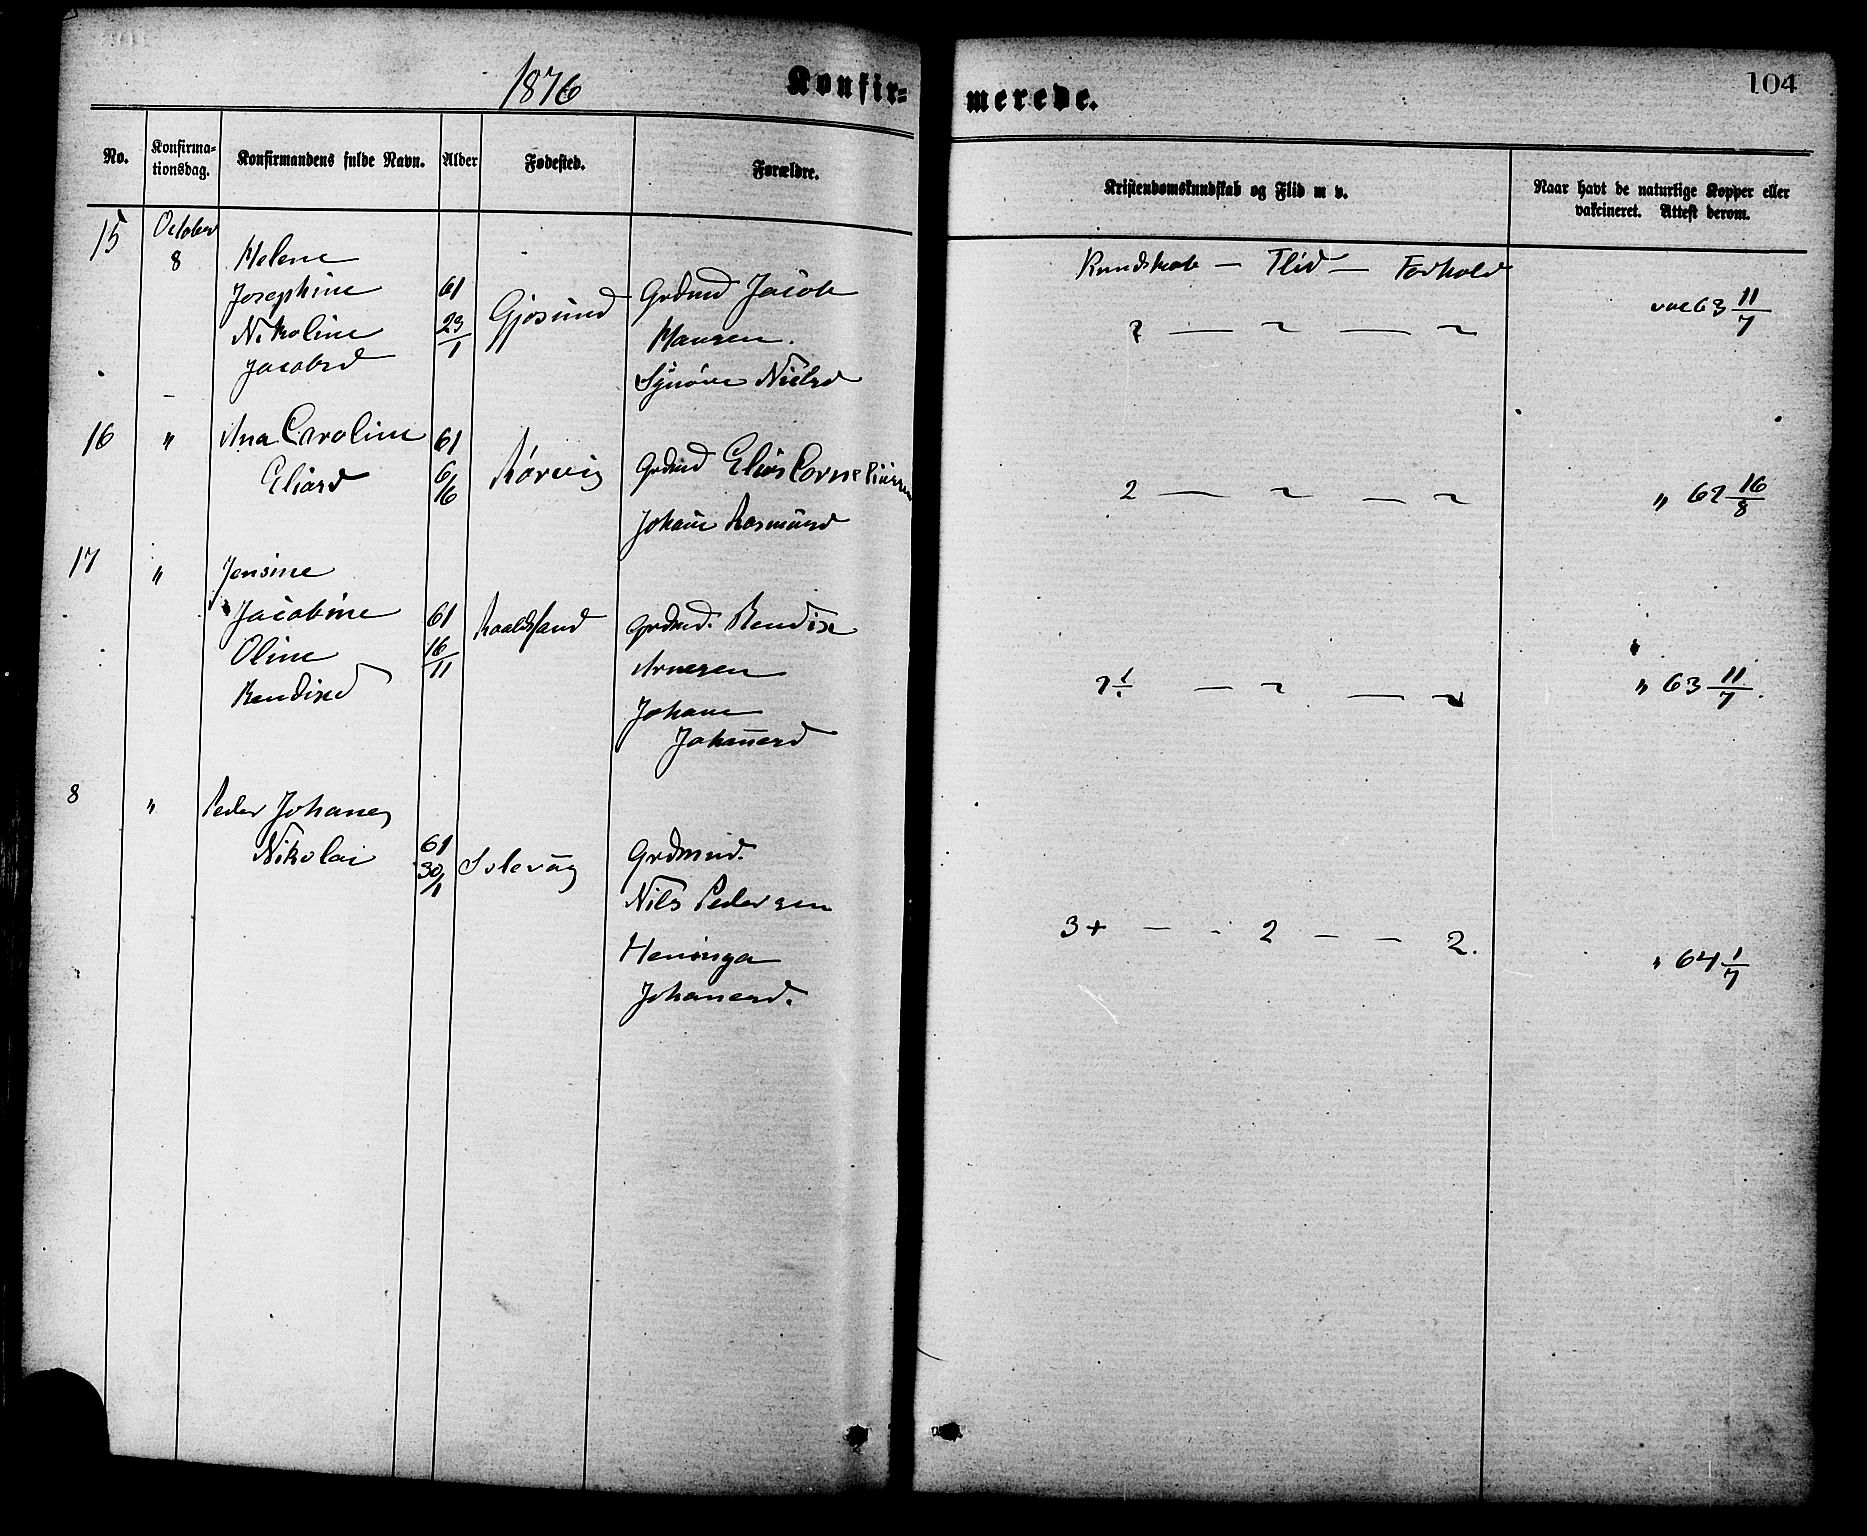 1876
Konfir=
merede.
104
No.
Konfirma-
tionsdag.
Konfirmandens fulde Navn.
Alder
Fødested.
Forældre.
Kristendomskundskab og Flid m v.
Naar havt de naturlige Kopper eller
vakcineret. Attest derom.
Kundskab — Flid — Forhold
15
October
8
Helene
Josephine
Nikoline
Jacobsd
61
23/1
Gjøsund
Grdmd Jacob
Hansen.
Synøve Nielsd
2 — 2 — 2
vac 63 11/7
16
"
Ana Caroline
Eliasd
61
6/16
Rørvig
Grdmd Elias Corneliussen
Johane Rasmusd
2 — 2 — 2
" 62 16/8
17
"
Jensine
Jacobine
Oline
Bendixd
61
16/11
Roaldsand
Grdmd. Bendix
Arnesen
Johane
Johanesd
2 — 2 — 2
" 63 11/7.
8
"
Peder Johanes
Nikolai
61
30/1
Solevåg
Grdmnd.
Nils Pedersen
Heninga
Johanesd.
3+ — - 2 — — 2.
" 64 1/7